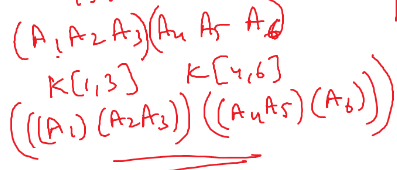 (A₁A₂A₃)(A₄ A₅ A₆)
K[1,3] K[4,6]
(((A₁)(A₂A₃))((A₄A₅)(A₆)))